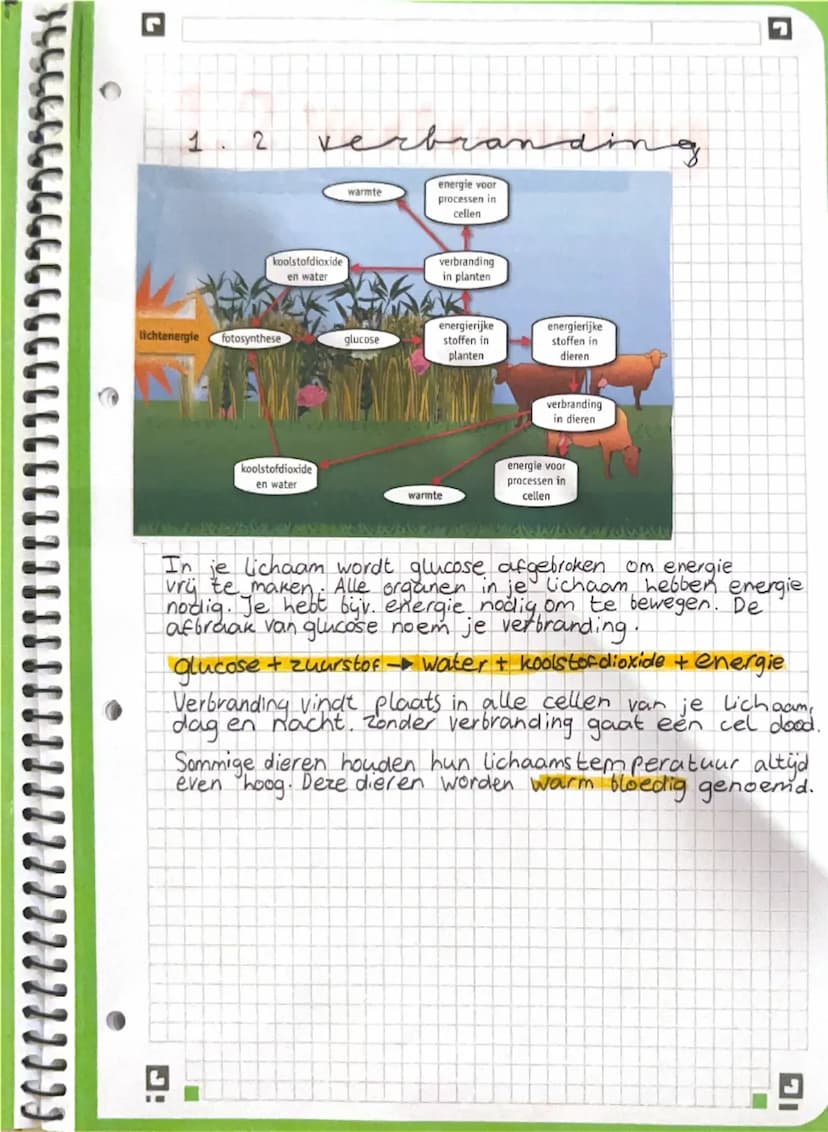 1.2 verbranding
warmte
energie voor
processen in
cellen
koolstofdioxide
en water
verbranding
in planten
lichtenergie
fotosynthese
glucose
energierijke
stoffen in
planten
energierijke
stoffen in
dieren
verbranding
in dieren
koolstofdioxide
en water
warmte
energie voor
processen in
cellen
In je lichaam wordt glucose afgebroken om energie
vrij te maken. Alle organen in je lichaam hebben energie
nodig. Je hebt bijv. energie nodig om te bewegen. De
afbraak van glucose noem je verbranding.
glucose + zuurstof → water + koolstofdioxide + energie
Verbranding vindt plaats in alle cellen van je lichaam,
dag en nacht. Zonder verbranding gaat een cel dood.
Sommige dieren houden hun lichaamstemperatuur altijd
even hoog. Deze dieren worden warm bloedig genoemd.